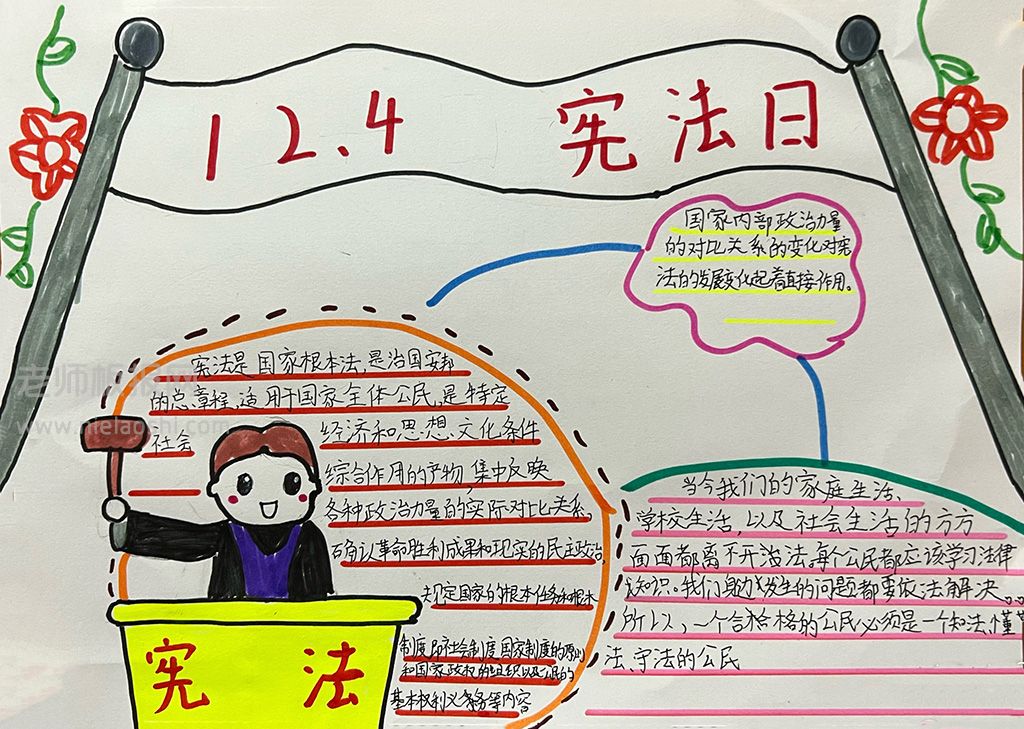 12.4 宪法日
国家内部政治力量
的对比关系的变化对宪
法的发展变化起着直接作用。
宪法是国家根本法,是治国安邦
的总章程,适用于国家全体公民,是特定
社会 经济和思想文化条件
综合作用的产物,集中反映
各种政治力量的实际对比关系,
确认革命胜利成果和现实的民主政治,
规定国家的根本任务和根本
制度,即社会制度,国家制度的原则
和国家政权的组织以及公民的
基本权利义务等内容
宪法
当今我们的家庭生活、
学校生活,以及社会生活的方方
面面都离不开法,每个公民都应该学习法律
知识。我们身边发生的问题都要依法解决。
所以,一个合格的公民必须是一个知法,懂
法、守法的公民
老师板报网
www.mielaoshi.com